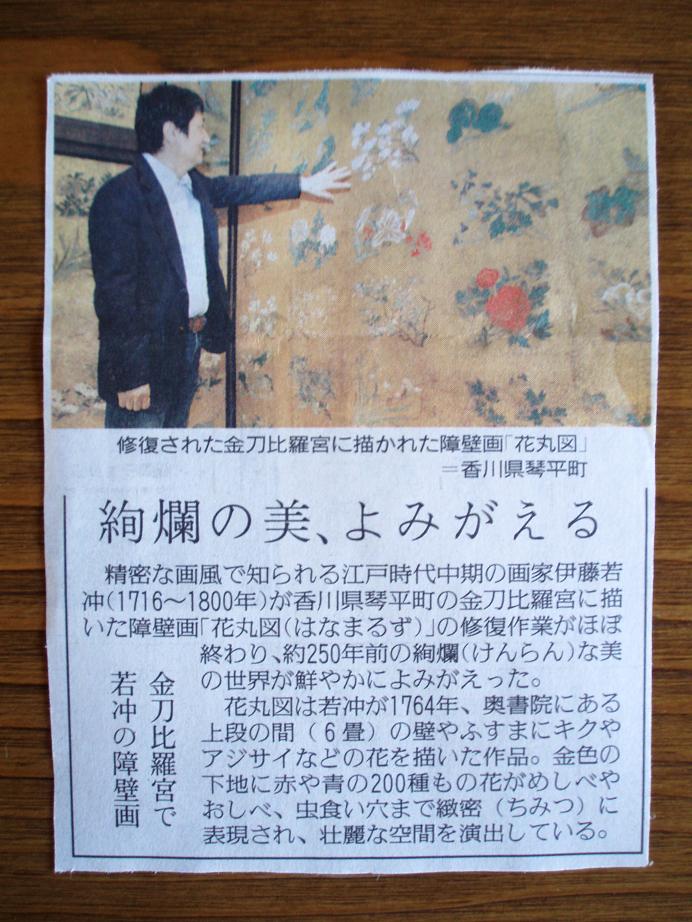 修復された金刀比羅宮に描かれた障壁画「花丸図」
＝香川県琴平町
絢爛の美、よみがえる
金刀比羅宮で
若冲の障壁画
精密な画風で知られる江戸時代中期の画家伊藤若
冲(1716～1800年)が香川県琴平町の金刀比羅宮に描
いた障壁画「花丸図(はなまるず)」の修復作業がほぼ
終わり、約250年前の絢爛(けんらん)な美
の世界が鮮やかによみがえった。
花丸図は若冲が1764年、奥書院にある
上段の間（6畳）の壁やふすまにキクや
アジサイなどの花を描いた作品。金色の
下地に赤や青の200種もの花がめしべや
おしべ、虫食い穴まで緻密（ちみつ）に
表現され、壮麗な空間を演出している。